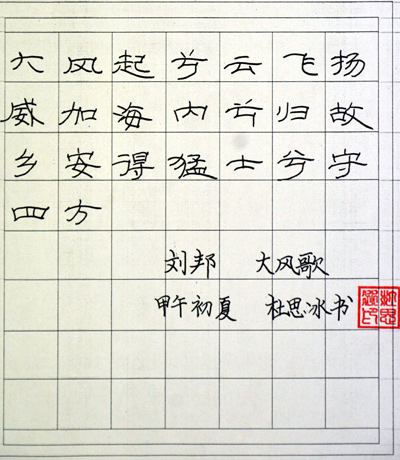 大风起兮云飞扬
威加海内兮归故
乡安得猛士兮守
四方
刘邦 大风歌
甲午初夏 杜思冰书